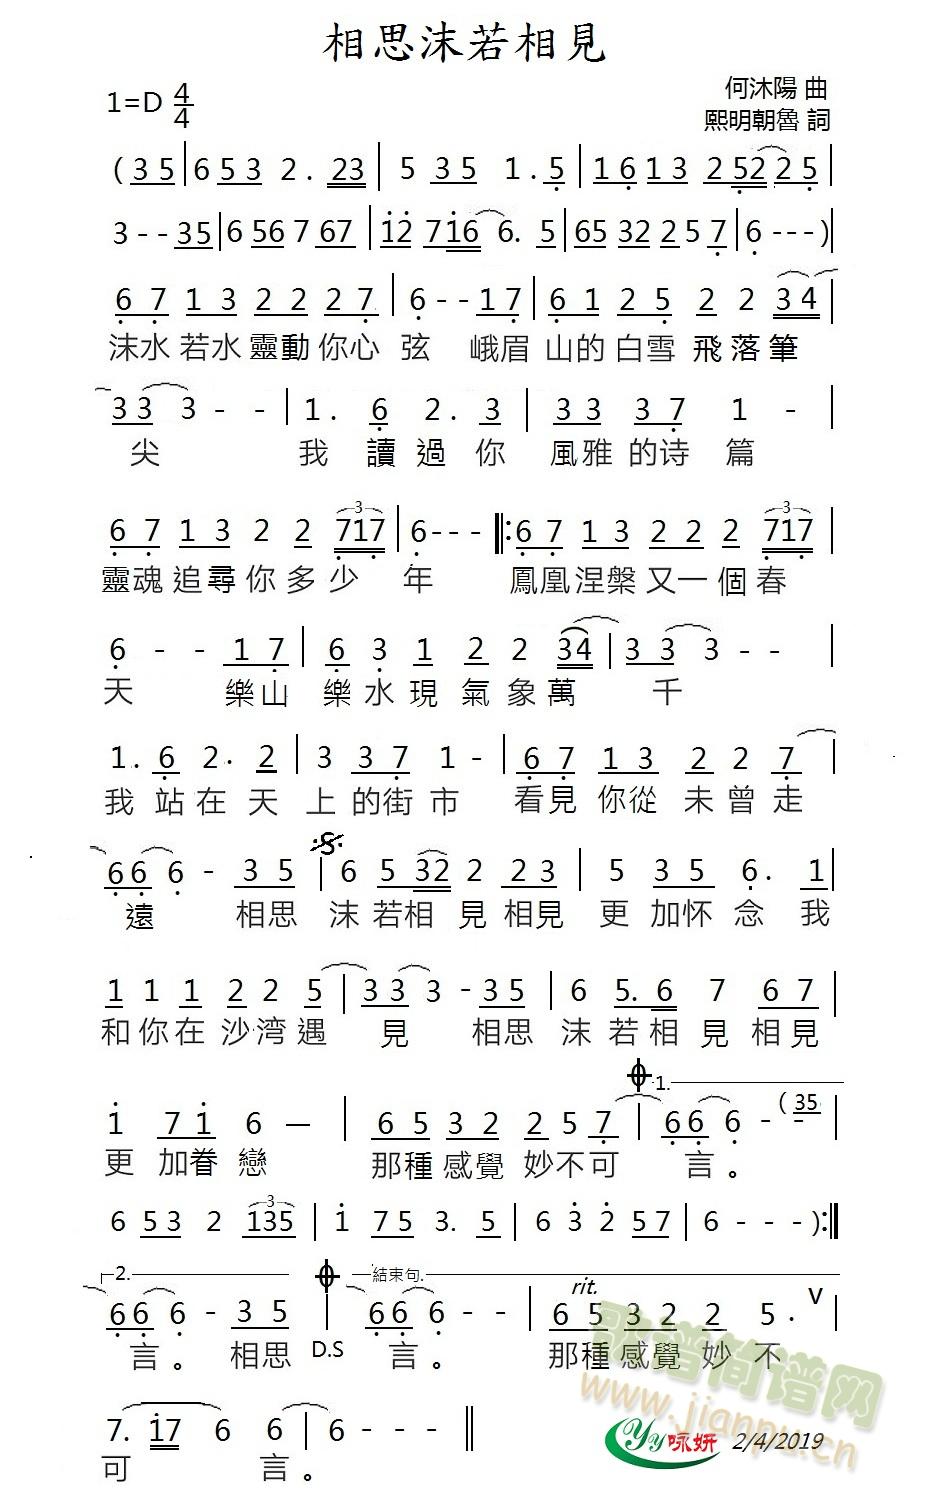 相思沫若相見
1=D 4/4
何沐陽 曲
熙明朝魯 詞
( 3 5 | 6 5 3 2 . 2 3 | 5 3 5 1 . 5 | 1 6 1 3 2 5 2 2 5 |
3 - - 3 5 | 6 5 6 7 6 7 | 1 2 7 1 6 6. 5 | 6 5 3 2 2 5 7 | 6 - - - ) |
6 7 1 3 2 2 2 7 | 6 - - 1 7 | 6 1 2 5 2 2 3 4 |
沫水 若水 靈動 你心 弦 峨眉 山的 白雪 飛落筆
3 3 3 - - | 1 . 6 2 . 3 | 3 3 3 7 1 - |
尖 我 讀過 你 風雅 的诗 篇
3 3
6 7 1 3 2 2 7 1 7 | 6 - - - |: 6 7 1 3 2 2 2 7 1 7 |
靈魂 追尋 你 多 少 年 鳳凰 涅槃 又一 個 春
6 - - 1 7 | 6 3 1 2 2 3 4 | 3 3 3 - - |
天 樂山 樂水 現 氣 象 萬 千
1 . 6 2 . 2 | 3 3 7 1 - | 6 7 1 3 2 2 7 |
我 站 在 天 上 的街 市 看見 你從 未 曾 走
6 6 6 - 3 5 | 6 5 3 2 2 2 3 | 5 3 5 6 . 1 |
遠 相思 沫 若相 見 相見 更 加怀 念 我
1 1 1 2 2 5 | 3 3 3 - 3 5 | 6 5. 6 7 6 7 |
和你在 沙湾 遇 見 相思 沫 若 相 見 相 見
1.
1 7 1 6 — | 6 5 3 2 2 5 7 | 6 6 6 - - ( 3 5 |
更 加眷 戀 那種 感覺 妙不可 言。
3
6 5 3 2 1 3 5 | 1 7 5 3. 5 | 6 3 2 5 7 | 6 - - - ) :|
2. 結束句.
rit. V
6 6 6 - 3 5 | 6 6 6 - - | 6 5 3 2 2 5 . |
言。 相思 D.S 言。 那種 感覺 妙 不
7. 1 7 6 6 6 - - - ||
可 言。
歌谱简谱网
www.jianpu.cn
Yy 咏妍 2/4/2019